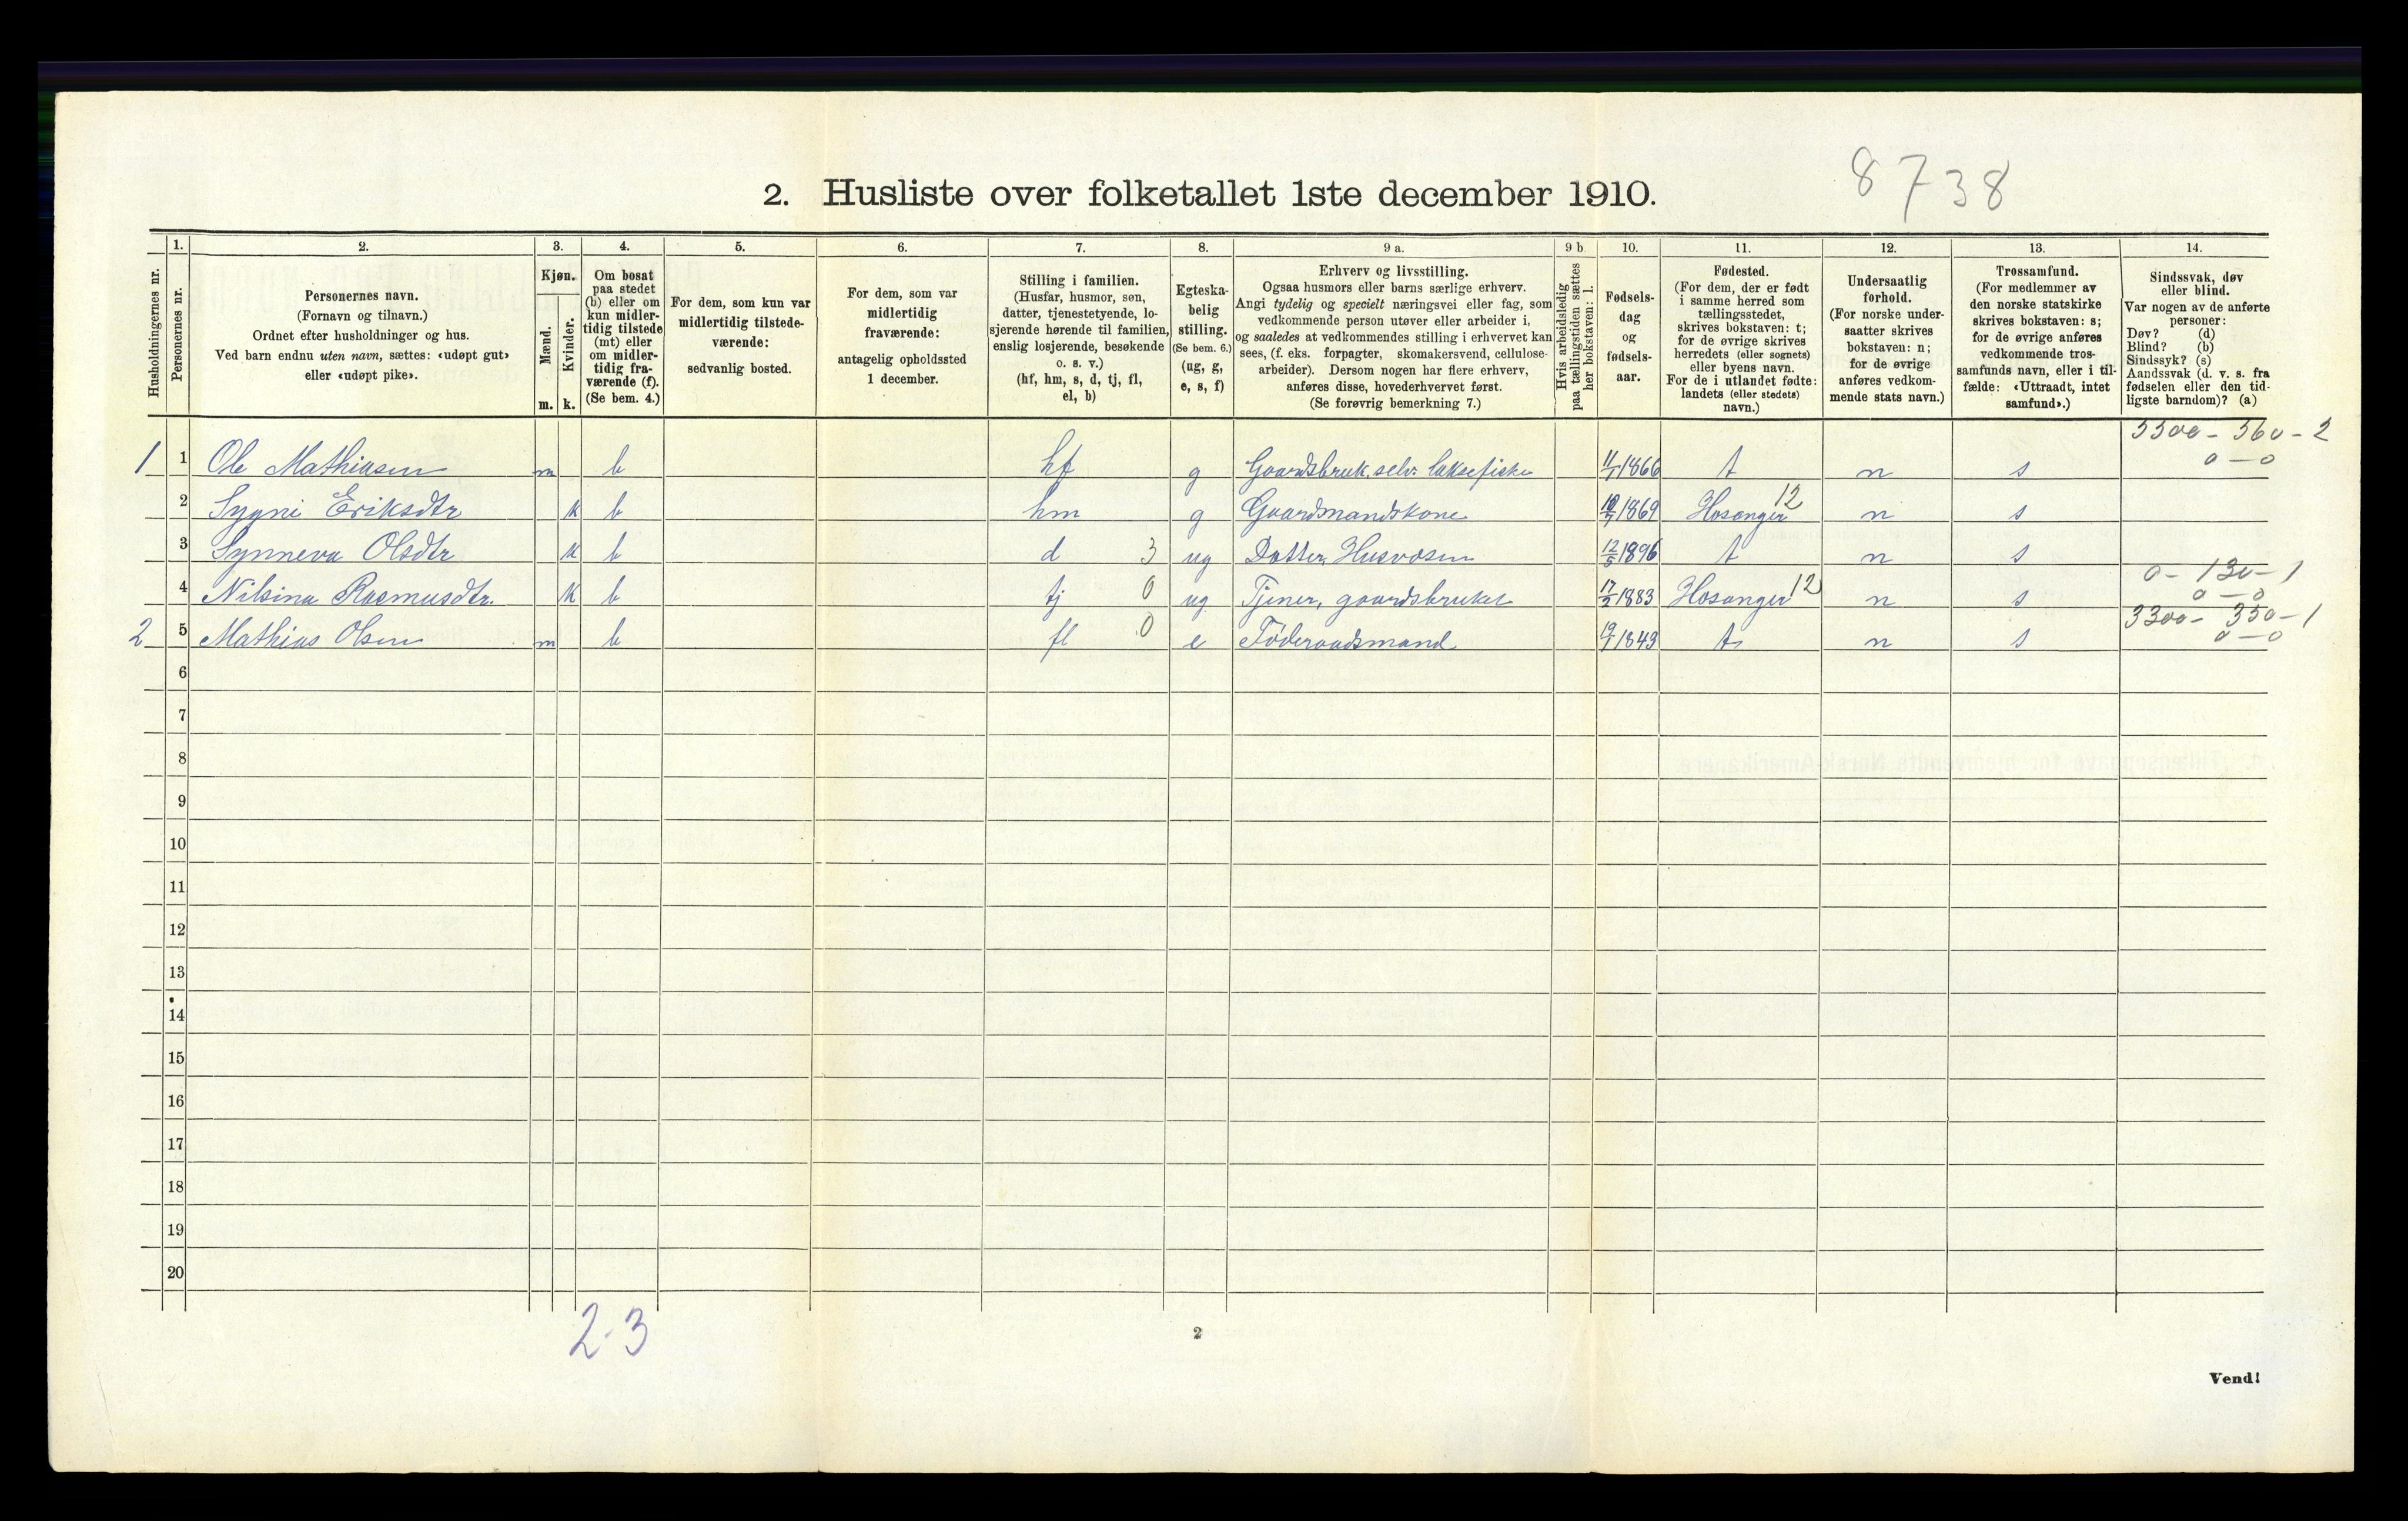 8738
2. Husliste over folketallet 1ste december 1910.
Husholdningernes nr.
1.
Personernes nr.
2.
Personernes navn.
(Fornavn og tilnavn.)
Ordnet efter husholdninger og hus.
Ved barn endnu uten navn, sættes: «udøpt gut»
eller «udøpt pike».
3.
Kjøn.
Mænd.
Kvinder.
m. k.
4.
Om bosat
paa stedet
(b) eller om
kun midler-
tidig tilstede
(mt) eller
om midler-
tidig fra-
værende (f).
(Se bem. 4.)
5.
For dem, som kun var
midlertidig tilstede-
værende:
sedvanlig bosted.
6.
For dem, som var
midlertidig
fraværende:
antagelig opholdssted
1 december.
7.
Stilling i familien.
(Husfar, husmor, søn,
datter, tjenestetyende, lo-
sjerende hørende til familien,
enslig losjerende, besøkende
o. s. v.)
(hf, hm, s, d, tj, fl,
el, b)
8.
Egteska-
belig
stilling.
(Se bem. 6.)
(ug, g,
e, s, f)
9 a.
Erhverv og livsstilling.
Ogsaa husmors eller barns særlige erhverv.
Angi tydelig og specielt næringsvei eller fag, som
vedkommende person utøver eller arbeider i,
og saaledes at vedkommendes stilling i erhvervet kan
sees, (f. eks. forpagter, skomakersvend, cellulose-
arbeider). Dersom nogen har flere erhverv,
anføres disse, hovederhvervet først.
(Se forøvrig bemerkning 7.)
9 b
Hvis arbeidsledig
paa tællingstiden sættes
her bokstaven: l.
10.
Fødsels-
dag
og
fødsels-
aar.
11.
Fødested.
(For dem, der er født
i samme herred som
tællingsstedet,
skrives bokstaven: t;
for de øvrige skrives
herredets (eller sognets)
eller byens navn.
For de i utlandet fødte:
landets (eller stedets)
navn.)
12.
Undersaatlig
forhold.
(For norske under-
saatter skrives
bokstaven: n;
for de øvrige
anføres vedkom-
mende stats navn.)
13.
Trossamfund.
(For medlemmer av
den norske statskirke
skrives bokstaven: s;
for de øvrige anføres
vedkommende tros-
samfunds navn, eller i til-
fælde: «Uttraadt, intet
samfund».)
14.
Sindssvak, døv
eller blind.
Var nogen av de anførte
personer:
Døv? (d)
Blind? (b)
Sindssyk? (s)
Aandssvak (d. v. s. fra
fødselen eller den tid-
ligste barndom)? (a)
3300 - 560 - 2
0 - 0
1 1 Ole Mathiasen m b hf g Gaardsbruk. selv. laksefiske 11/1 1866 t n s
2 Sygni Eriksdtr k b hm g Gaardmandskone 1869 Hosanger 12 n s
3 Synneva Olsdtr k b d 3 ug Datter, Husvæsen 12/5 1896 t n s
0 - 130 - 1
0 - 0
4 Nilsina Rasmusdtr. k b tj 0 ug Tjener, gaardsbruket 17/2 1883 Hosanger 12 n s
3300 - 350 - 1
0 - 0
2 5 Mathias Olsen m b fl 0 e Føderaadsmand 1843 t n s
6
7
8
9
10
11
12
13
14
15
16
17
18
19
20
2-3
2
Vend!